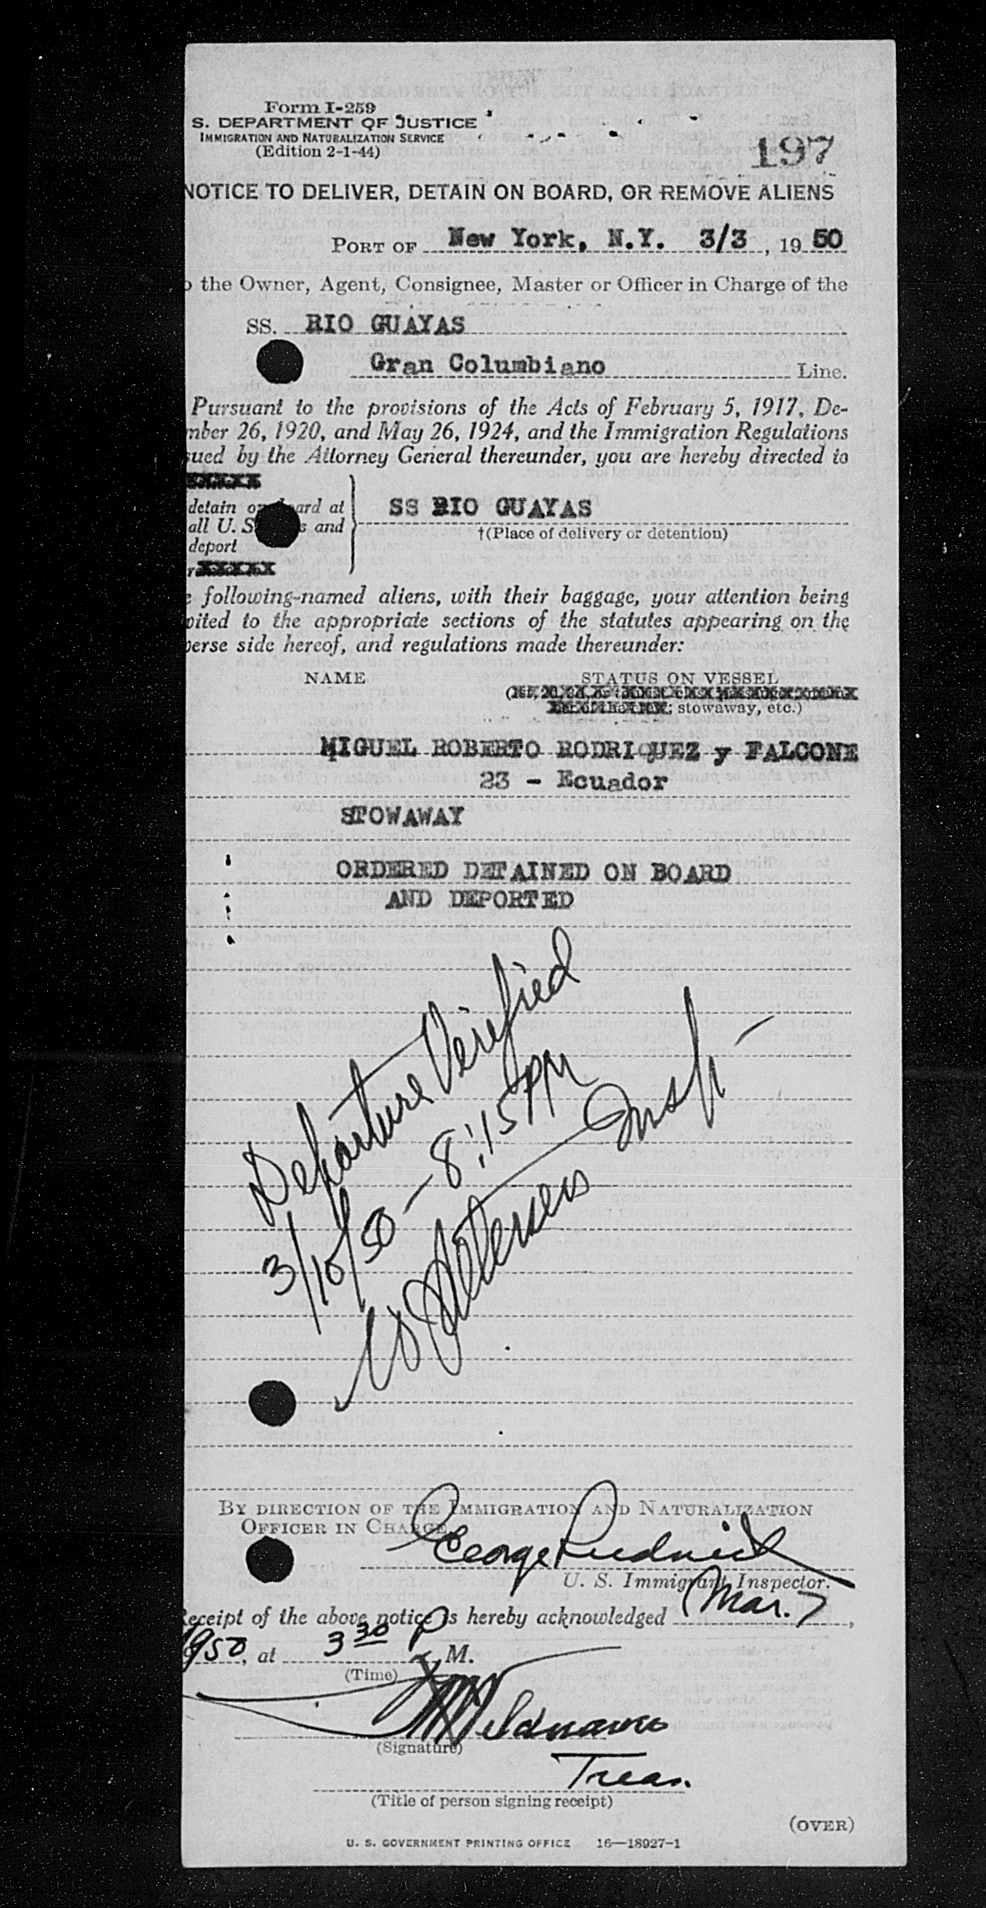 Form I-259
S. DEPARTMENT OF JUSTICE
IMMIGRATION AND NATURALIZATION SERVICE
(Edition 2-1-44)
197
NOTICE TO DELIVER, DETAIN ON BOARD, OR REMOVE ALIENS
PORT OF New York, N.Y. 3/3, 1950
the Owner, Agent, Consignee, Master or Officer in Charge of the
SS. RIO GUAYAS
Gran Columbiano Line.
Pursuant to the provisions of the Acts of February 5, 1917, De-
mber 26, 1920, and May 26, 1924, and the Immigration Regulations
sued by the Attorney General thereunder, you are hereby directed to
XXXXX
detain on board at
all U. S. and
deport
SS RIO GUAYAS
†(Place of delivery or detention)
r XXXXX
following-named aliens, with their baggage, your attention being
vited to the appropriate sections of the statutes appearing on the
verse side hereof, and regulations made thereunder:
NAME STATUS ON VESSEL
stowaway, etc.)
MIGUEL ROBERTO RODRIQUEZ y FALCONE
23 - Ecuador
STOWAWAY
ORDERED DETAINED ON BOARD
AND DEPORTED
Departure Verified
3/10/50 - 8:15 PM
Petersen Insp-
BY DIRECTION OF THE IMMIGRATION AND NATURALIZATION
OFFICER IN CHARGE
George Rudnick
U. S. Immigrant Inspector.
Receipt of the above notice is hereby acknowledged Mar. 7,
1950, at 3 30 P M.
(Time)
(Signature)
Treas.
(Title of person signing receipt)
(OVER)
U. S. GOVERNMENT PRINTING OFFICE 16—18927-1